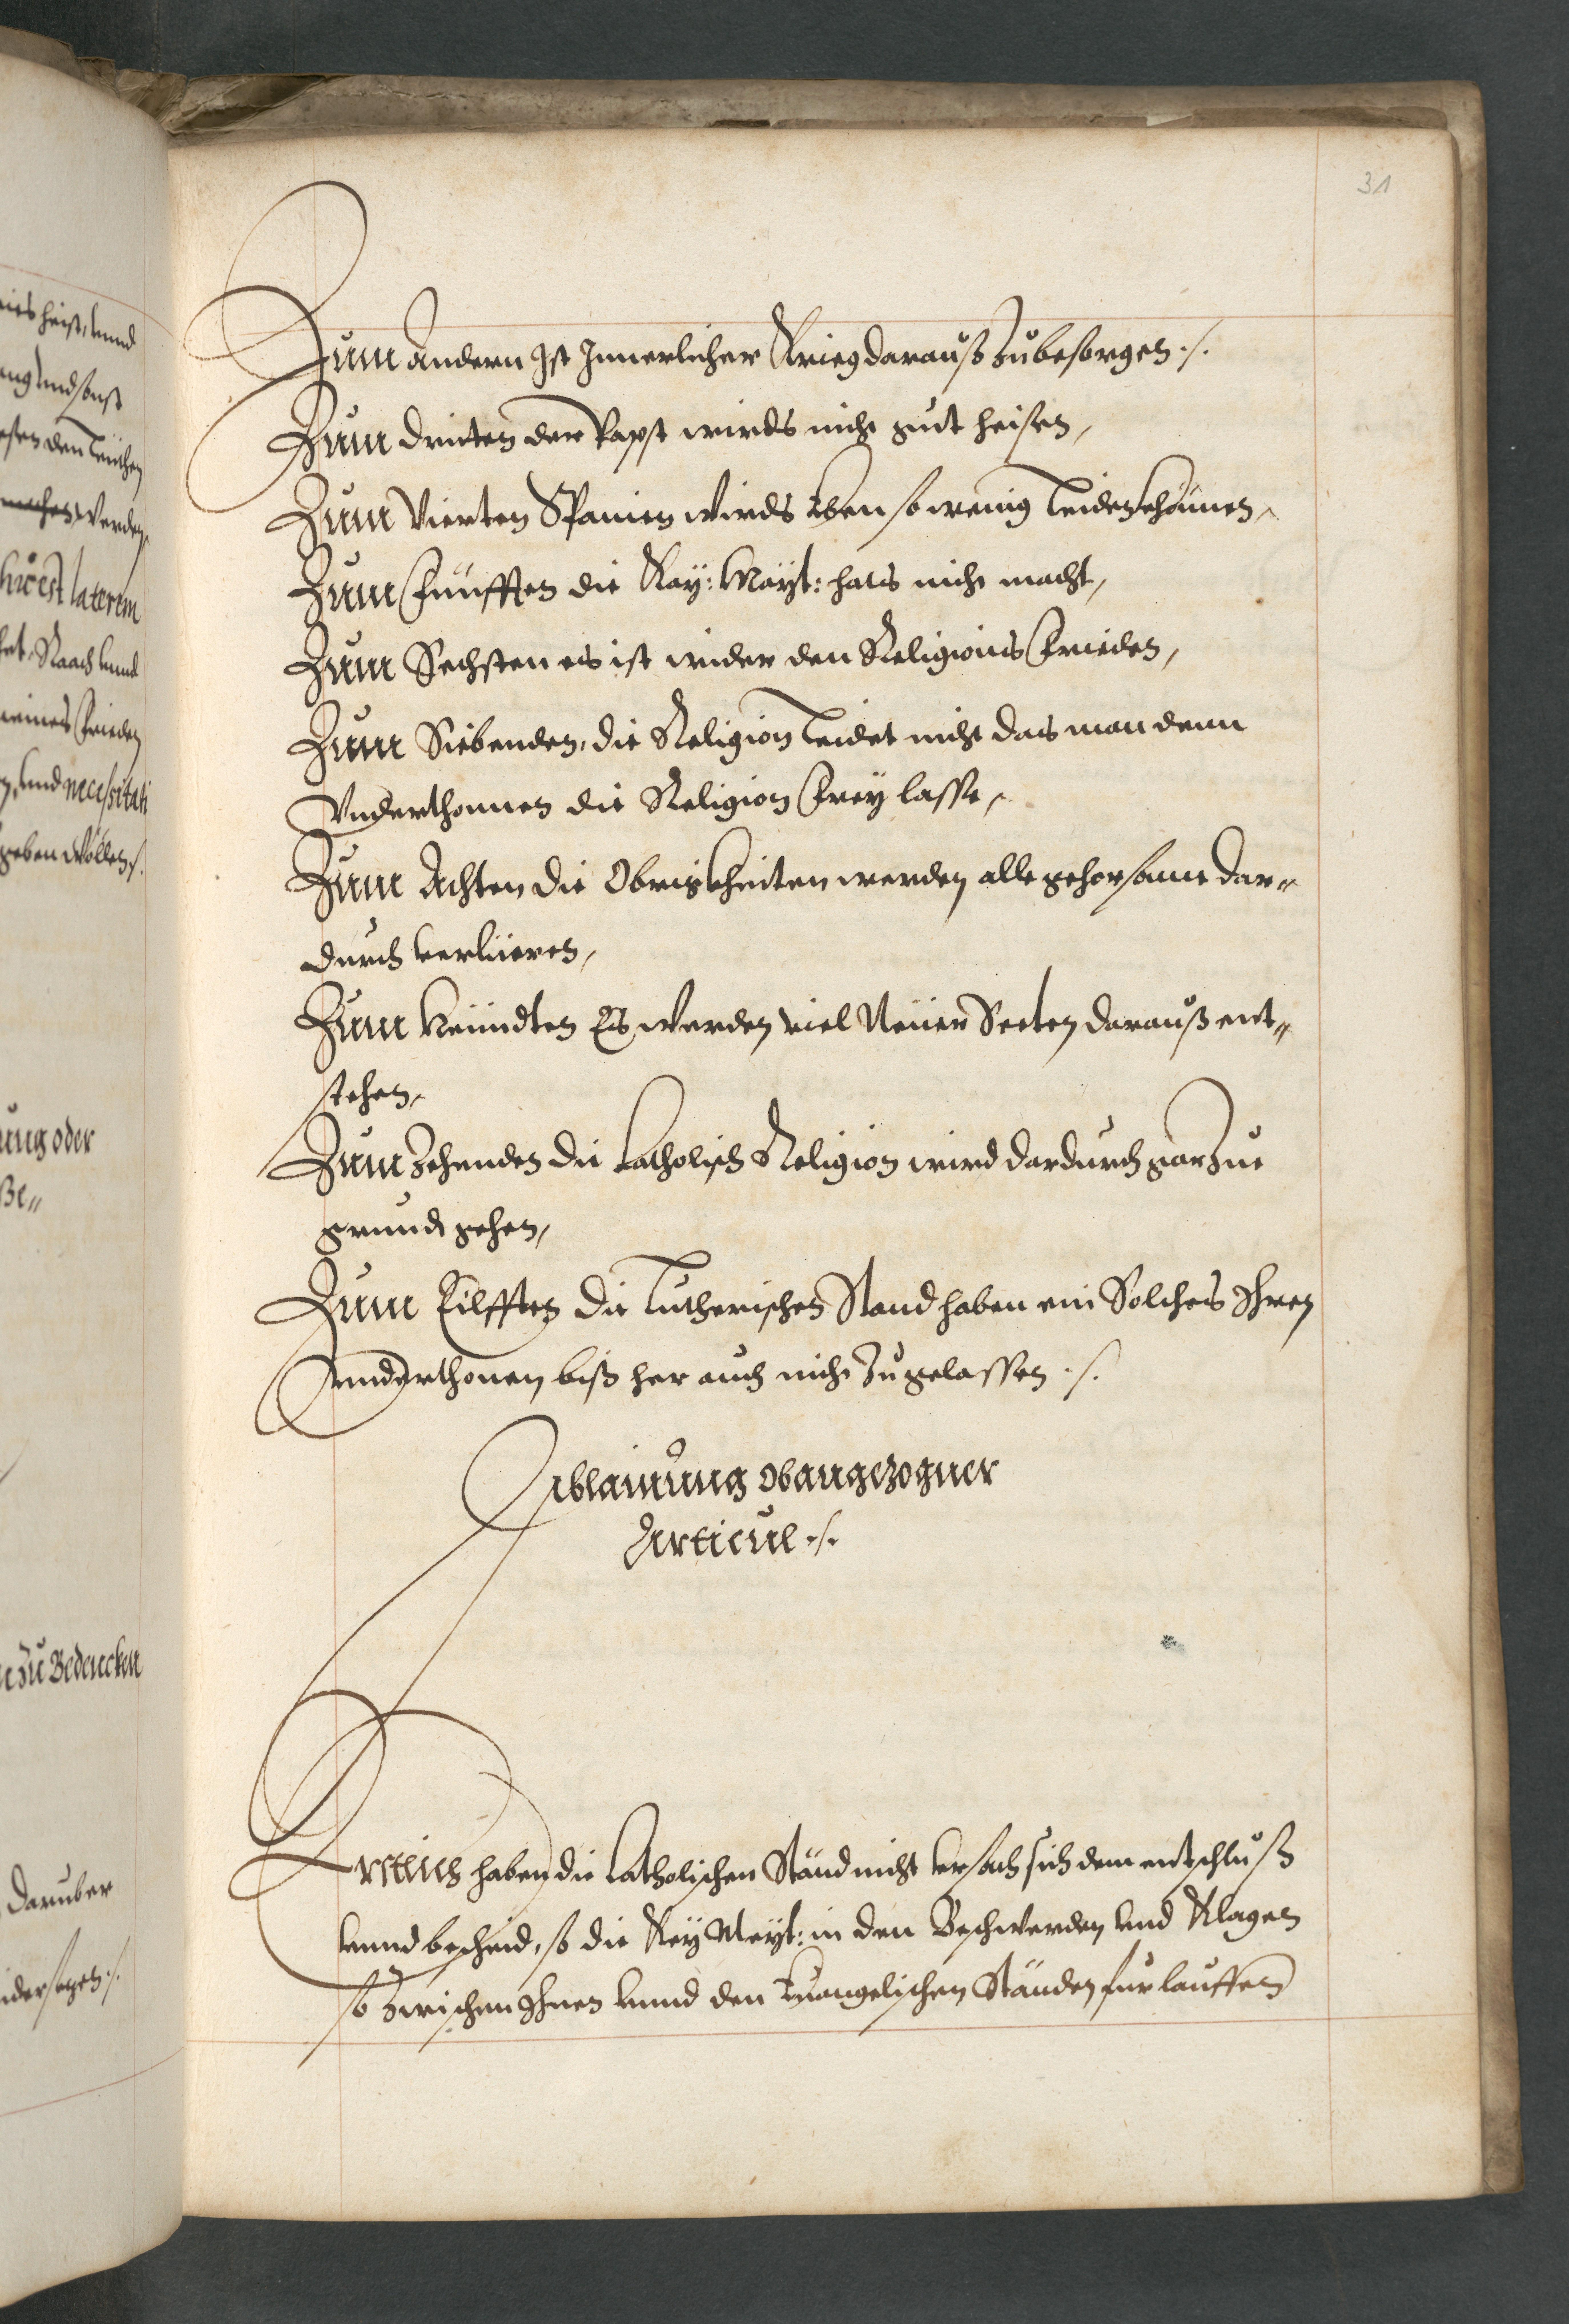 31
Zum andern Ist Innerlicher Krieg darauß zubesorgen ./.
Zum dritten der Papst wirds nicht gut heisen,
Zum Vierten Spanien wirds Eben so wenig Leiden khönnen,
Zum Fünfften die Kay: Mayt: hats nicht macht,
Zum Sechsten es ist wider den Religions Frieden,
Zum Siebenden, die Religion Leidet nicht das man denn
Vnderthonnen die Religion Frey lasse,
Zum Achten die Obrigkheiten werden alle gehorsame dar„
durch verlüeren,
Zum Neündten Es werden viel Neüer Secten darauß ent„
stehen,
Zum Zehenden die Catholisch Religion wird dardurch gar zue
grund gehen,
Zum Eilfften die Lutherischen Stand haben ein Solches Ihren
vnnderthonen bißher auch nicht zugelassen ./.
Ablainung obangezogner
Articul ./.
Erstlich haben die Catholischen Ständ nicht vrsach sich dem entschluß
vnnd bescheid, so die Key Meyt: in den Beschwerden vnd Klagen
so zwischen Ihnen vnnd den Euangelischen Ständen fürlauffen
nies heist, vnnd
vnd sonst
den Leüthen
machen werden,
hoc est laterem
Raach vnnd
meines Frieden
vnd necessitati
geben wöllen ./.
ung oder
Be„
zu Bedencken
daruber